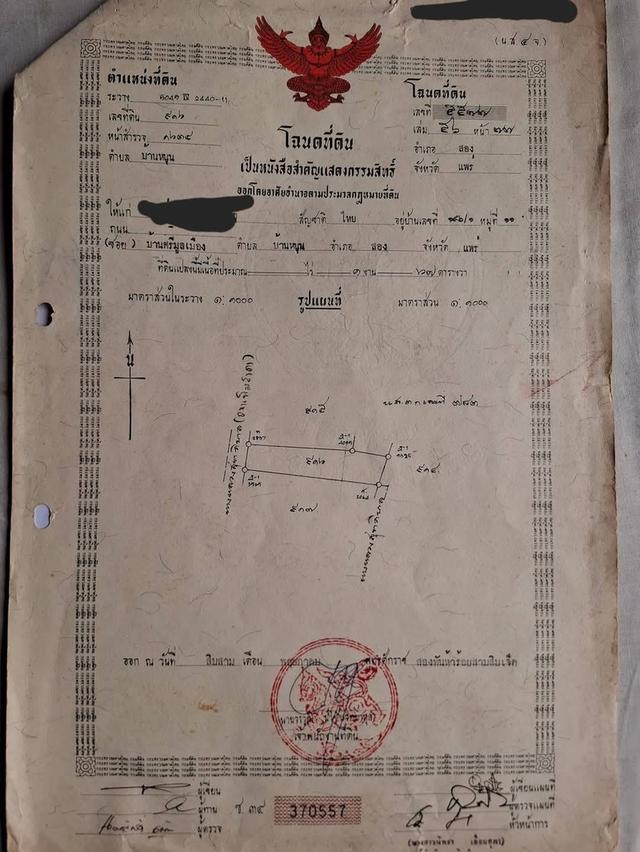 (น.ส. ๔ จ.)
ตำแหน่งที่ดิน
ระวาง 5041 IV 2440-11
เลขที่ดิน ๕๑๖
หน้าสำรวจ
ตำบล บ้านหนุน
โฉนดที่ดิน
เลขที่
เล่ม ๕๖ หน้า ๗๗
อำเภอ สอง
จังหวัด แพร่
โฉนดที่ดิน
เป็นหนังสือสำคัญแสดงกรรมสิทธิ์
ออกโดยอาศัยอำนาจตามประมวลกฎหมายที่ดิน
ให้แก่ สัญชาติ ไทย อยู่บ้านเลขที่ หมู่ที่ ๑๑
ถนน
(ซอย) บ้านศรีมูลเมือง ตำบล บ้านหนุน อำเภอ สอง จังหวัด แพร่
ที่ดินแปลงนี้มีเนื้อที่ประมาณ ไร่ ๑ งาน ๖๗ ตารางวา
มาตราส่วนในระวาง ๑:๑๐๐๐ รูปแผนที่ มาตราส่วน ๑:๑๐๐๐
น
๕๑๕
น.ส. ๓ ก. เลขที่ ๗๘๓
๕๑๖
๕๑๔
๕๑๗
ทางสาธารณประโยชน์
ออก ณ วันที่ สิบสาม เดือน พฤษภาคม พุทธศักราช สองพันห้าร้อยสามสิบเจ็ด
เจ้าพนักงานที่ดิน
ผู้เขียน
ผู้ทาน
ผู้ตรวจ
ช. ๓๔ 370557
ผู้เขียนแผนที่
ผู้ตรวจแผนที่
หัวหน้าการ